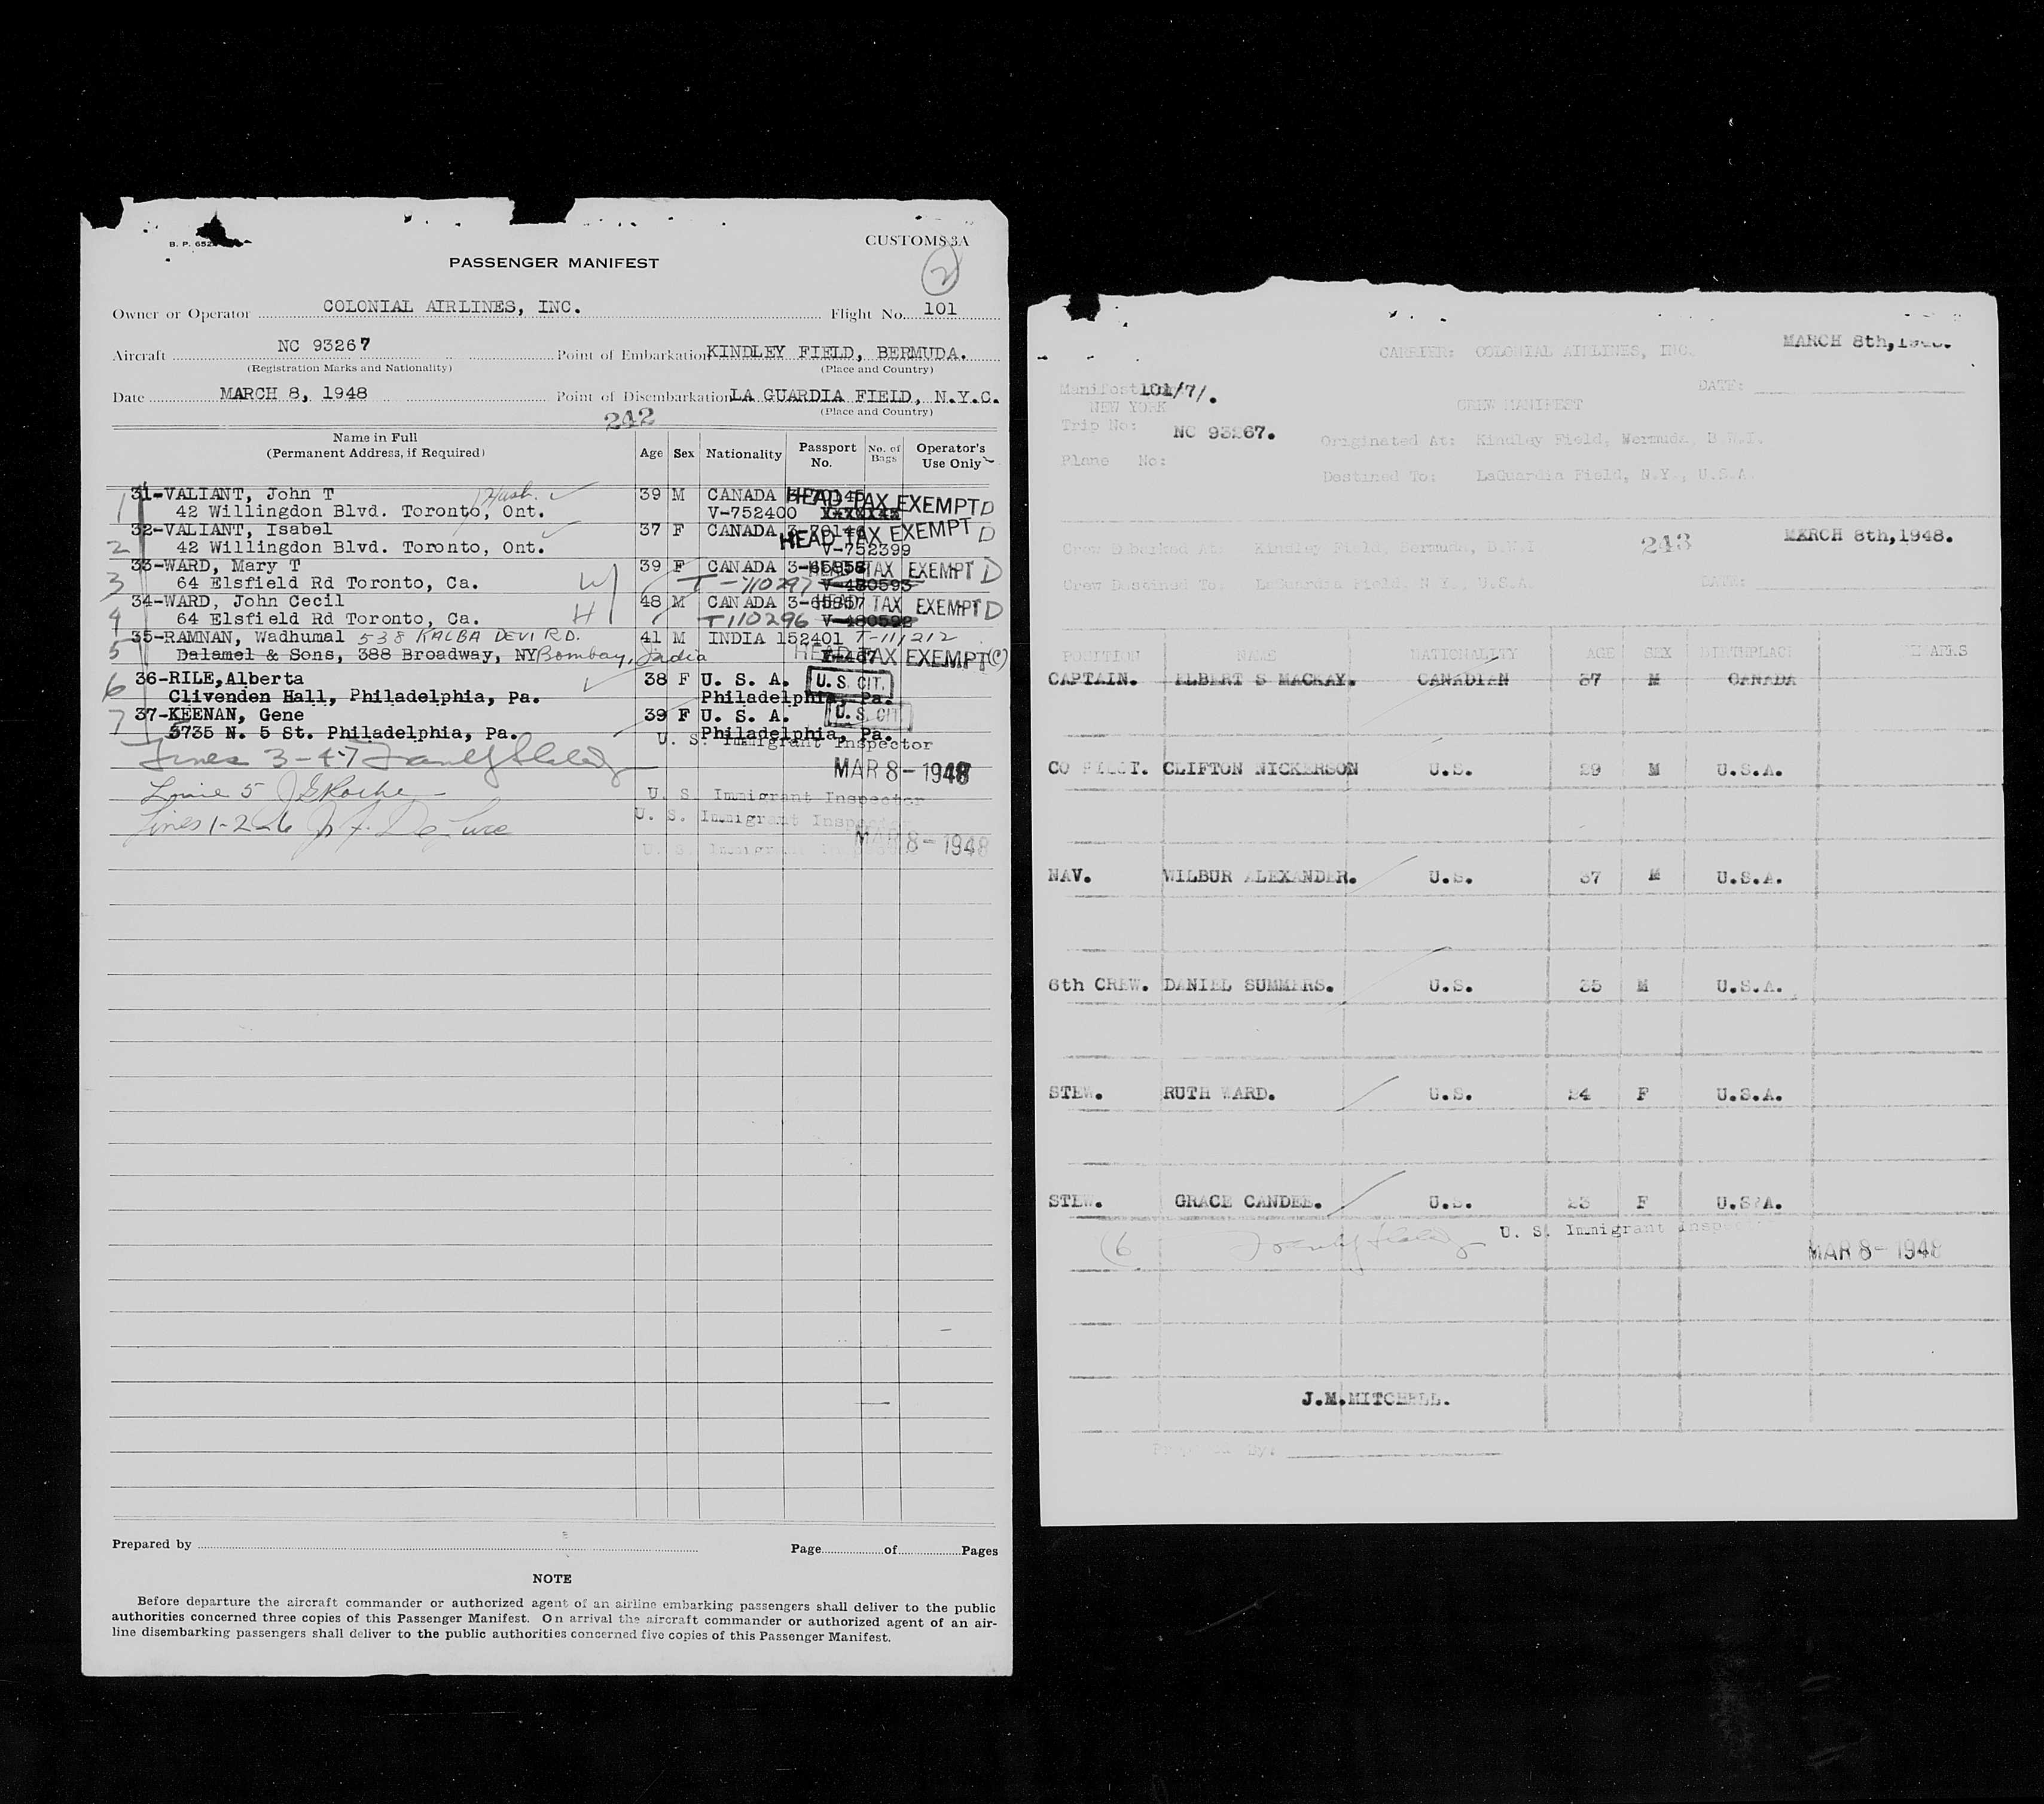 B. P. 652
CUSTOMS 3A
2
PASSENGER MANIFEST
Owner or Operator COLONIAL AIRLINES, INC. Flight No. 101
Aircraft NC 93267 Point of Embarkation KINDLEY FIELD, BERMUDA.
(Registration Marks and Nationality) (Place and Country)
Date MARCH 8, 1948 Point of Disembarkation LA GUARDIA FIELD, N.Y.C.
(Place and Country)
242
Name in Full
(Permanent Address, if Required) Age Sex Nationality Passport No. No. of Bags Operator's Use Only
1 31-VALIANT, John T Husb. 39 M CANADA HEAD TAX EXEMPT D
42 Willingdon Blvd. Toronto, Ont. V-752400
2 32-VALIANT, Isabel 37 F CANADA 3-70146 HEAD TAX EXEMPT D
42 Willingdon Blvd. Toronto, Ont. V-752399
3 33-WARD, Mary T W 39 F CANADA 3-65858 HEAD TAX EXEMPT D
64 Elsfield Rd Toronto, Ca. T-110297 V-480593
4 34-WARD, John Cecil H 48 M CANADA 3-65857 HEAD TAX EXEMPT D
64 Elsfield Rd Toronto, Ca. T110296 V-480592
5 35-RAMNAN, Wadhumal 538 KALBA DEVI RD. 41 M INDIA 152401 T-111212
Dalamel & Sons, 388 Broadway, NY Bombay, India HEAD TAX EXEMPT (C)
6 36-RILE,Alberta 38 F U. S. A. U. S. CIT.
Clivenden Hall, Philadelphia, Pa. Philadelphia, Pa.
7 37-KEENAN, Gene 39 F U. S. A. U. S. CIT.
5735 N. 5 St. Philadelphia, Pa. Philadelphia, Pa.
U. S. Immigrant Inspector
Lines 3-4-7
MAR 8-1948
Line 5
U. S. Immigrant Inspector
Lines 1-2-6
U. S. Immigrant Inspector
MAR 8-1948
Prepared by Page of Pages
NOTE
Before departure the aircraft commander or authorized agent of an airline embarking passengers shall deliver to the public
authorities concerned three copies of this Passenger Manifest. On arrival the aircraft commander or authorized agent of an air-
line disembarking passengers shall deliver to the public authorities concerned five copies of this Passenger Manifest.
CARRIER: COLONIAL AIRLINES, INC. MARCH 8th,1948.
Manifest 101/7/. DATE:
NEW YORK CREW MANIFEST
Trip No: NC 93267. Originated At: Kindley Field, Bermuda, B.W.I.
Plane No:
Destined To: LaGuardia Field, N.Y., U.S.A.
Crew Embarked At: Kindley Field, Bermuda, B.W.I 243 MARCH 8th,1948.
Crew Destined To: LaGuardia Field, N.Y., U.S.A. DATE:
POSITION NAME NATIONALITY AGE SEX BIRTHPLACE REMARKS
CAPTAIN. ELBERT S MACKAY. CANADIAN 37 M CANADA
CO PILOT. CLIFTON NICKERSON U.S. 29 M U.S.A.
NAV. WILBUR ALEXANDER. U.S. 37 M U.S.A.
6th CREW. DANIEL SUMMERS. U.S. 35 M U.S.A.
STEW. RUTH WARD. U.S. 24 F U.S.A.
STEW. GRACE CANDEE. U.S. 23 F U.S.A.
(6 U. S. Immigrant Inspector
MAR 8-1948
J.M.MITCHELL.
Prepared By: